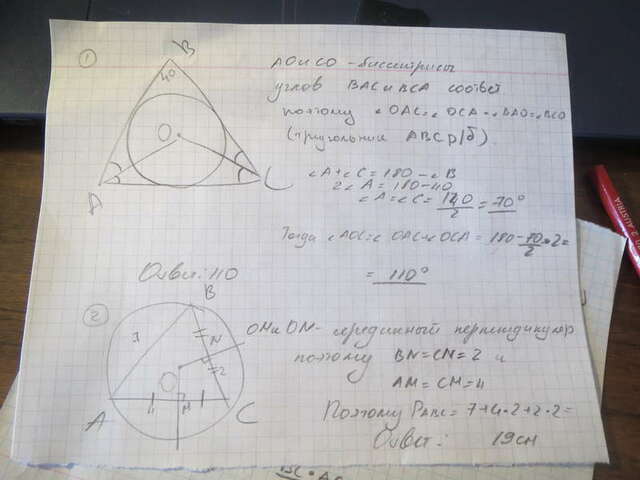 1
B
40
O
A
C
AO и CO - биссектрисы
углов BAC и BCA соответ
поэтому ∠OAC=∠OCA=∠BAO=∠BCO
(треугольник ABC р/б)
∠A+∠C=180-∠B
2∠A=180-40
∠A=∠C=140/2=70°
Тогда ∠AOC=∠OAC-∠OCA=180-70/2•2=
=110°
Ответ: 110
2
B
7
N
2
O
A
4
M
C
OM и ON- серединный перпендикуляр
поэтому BN=CN=2 и
AM=CM=4
Поэтому PABC=7+4•2+2•2=
Ответ: 19см
AUSTRIA